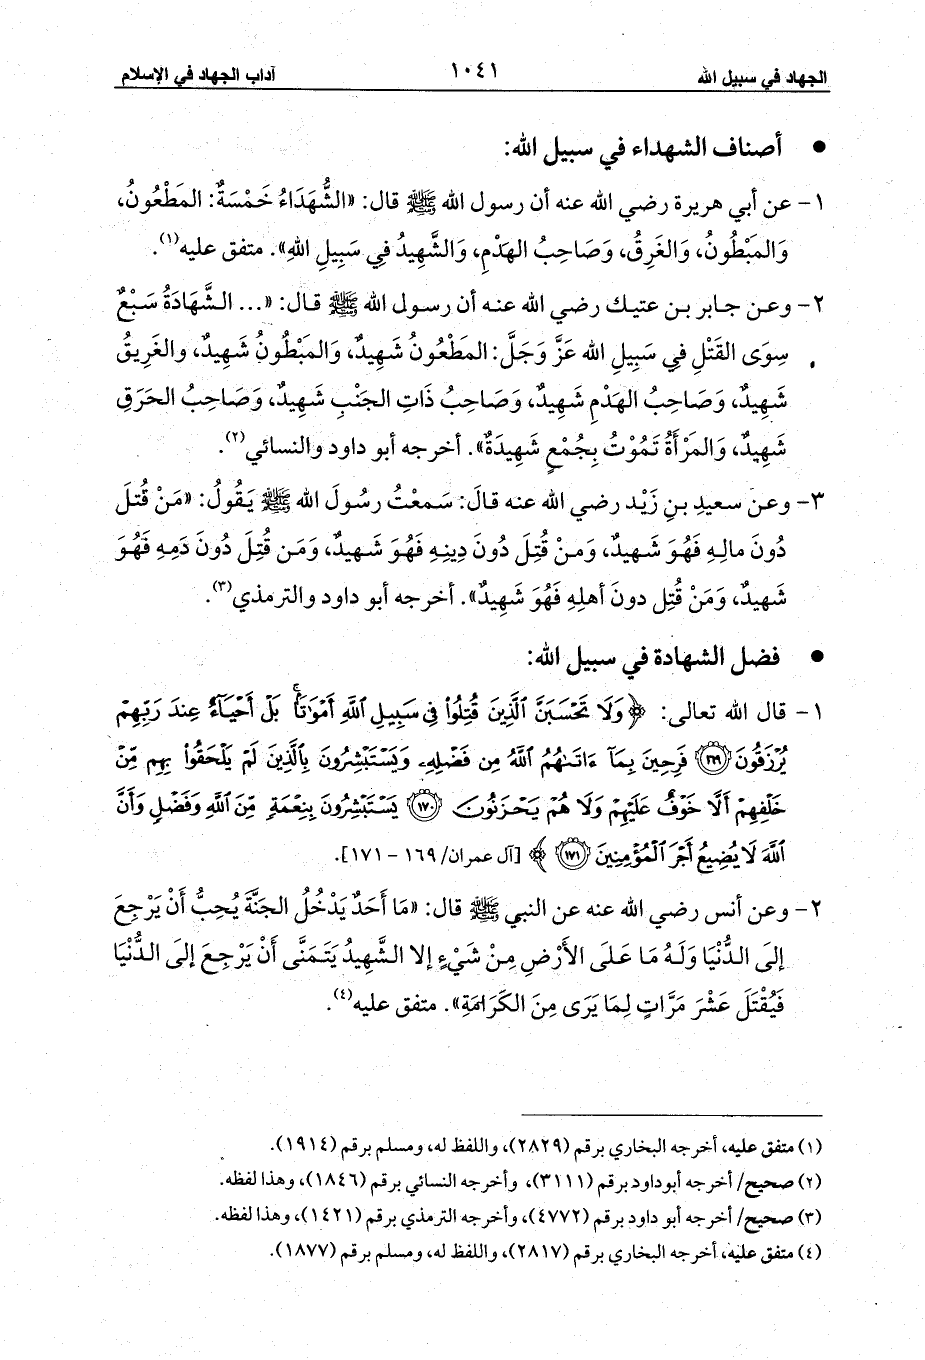 الجهاد في سبيل الله ١٠٤١ آداب الجهاد في الإسلام
• أصناف الشهداء في سبيل الله:
١- عن أبي هريرة رضي الله عنه أن رسول الله ﷺ قال: «الشُّهَدَاءُ خَمْسَةٌ: المَطْعُونُ،
وَالمَبْطُونُ، وَالغَرِقُ، وَصَاحِبُ الهَدْمِ، وَالشَّهِيدُ فِي سَبِيلِ اللهِ». متفق عليه(١).
٢- وعن جابر بن عتيك رضي الله عنه أن رسول الله ﷺ قال: «... الشَّهَادَةُ سَبْعٌ
سِوَى القَتْلِ فِي سَبِيلِ الله عَزَّ وَجَلَّ: المَطْعُونُ شَهِيدٌ، وَالمَبْطُونُ شَهِيدٌ، والغَرِيقُ
شَهِيدٌ، وَصَاحِبُ الهَدْمِ شَهِيدٌ، وَصَاحِبُ ذَاتِ الجَنْبِ شَهِيدٌ، وَصَاحِبُ الحَرَقِ
شَهِيدٌ، وَالمَرْأَةُ تَمُوْتُ بِجُمْعٍ شَهِيدَةٌ». أخرجه أبو داود والنسائي(٢).
٣- وعن سعيدِ بنِ زَيْد رضي الله عنه قالَ: سَمعْتُ رسُولَ الله ﷺ يَقُولُ: «مَنْ قُتلَ
دُونَ مالِهِ فَهُوَ شَهيدٌ، وَمنْ قُتِلَ دُونَ دِينِهِ فَهُوَ شَهيدٌ، وَمَن قُتِلَ دُونَ دَمِهِ فَهُوَ
شَهيدٌ، وَمَنْ قُتِل دونَ أهلِهِ فَهُوَ شَهِيدٌ». أخرجه أبو داود والترمذي(٣).
• فضل الشهادة في سبيل الله:
١- قال الله تعالى: ﴿وَلَا تَحْسَبَنَّ ٱلَّذِينَ قُتِلُوا۟ فِى سَبِيلِ ٱللَّهِ أَمْوَٰتًۢا ۚ بَلْ أَحْيَآءٌ عِندَ رَبِّهِمْ
يُرْزَقُونَ ﴿١٦٩﴾ فَرِحِينَ بِمَآ ءَاتَىٰهُمُ ٱللَّهُ مِن فَضْلِهِۦ وَيَسْتَبْشِرُونَ بِٱلَّذِينَ لَمْ يَلْحَقُوا۟ بِهِم مِّنْ
خَلْفِهِمْ أَلَّا خَوْفٌ عَلَيْهِمْ وَلَا هُمْ يَحْزَنُونَ ﴿١٧٠﴾ يَسْتَبْشِرُونَ بِنِعْمَةٍ مِّنَ ٱللَّهِ وَفَضْلٍ وَأَنَّ
ٱللَّهَ لَا يُضِيعُ أَجْرَ ٱلْمُؤْمِنِينَ ﴿١٧١﴾﴾ [آل عمران/ ١٦٩ - ١٧١].
٢- وعن أنس رضي الله عنه عن النبي ﷺ قال: «مَا أَحَدٌ يَدْخُلُ الجَنَّةَ يُحِبُّ أَنْ يَرْجِعَ
إلَى الدُّنْيَا وَلَهُ مَا عَلَى الأَرْضِ مِنْ شَيْءٍ إلا الشَّهِيدُ يَتَمَنَّى أَنْ يَرْجِعَ إلَى الدُّنْيَا
فَيُقْتَلَ عَشْرَ مَرَّاتٍ لِمَا يَرَى مِنَ الكَرَامَةِ». متفق عليه(٤).
(١) متفق عليه، أخرجه البخاري برقم (٢٨٢٩)، واللفظ له، ومسلم برقم (١٩١٤).
(٢) صحيح/ أخرجه أبوداود برقم (٣١١١)، وأخرجه النسائي برقم (١٨٤٦)، وهذا لفظه.
(٣) صحيح/ أخرجه أبو داود برقم (٤٧٧٢)، وأخرجه الترمذي برقم (١٤٢١)، وهذا لفظه.
(٤) متفق عليه، أخرجه البخاري برقم (٢٨١٧)، واللفظ له، ومسلم برقم (١٨٧٧).